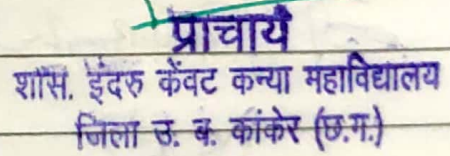 प्राचार्य
शास. इंदरु केंवट कन्या महाविद्यालय
जिला उ. ब. कांकेर (छ.ग.)